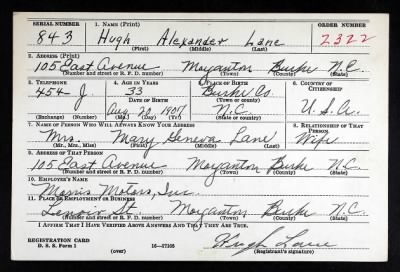 SERIAL NUMBER 1. NAME (Print) ORDER NUMBER
843 Hugh Alexander Lane 2322
(First) (Middle) (Last)
2. ADDRESS (Print)
105 East Avenue Morganton Burke N.C.
(Number and street or R. F. D. number) (Town) (County) (State)
3. TELEPHONE 4. AGE IN YEARS 5. PLACE OF BIRTH 6. COUNTRY OF CITIZENSHIP
454 J. 33 Burke Co.
DATE OF BIRTH (Town or county)
Aug 20 1907 N.C. U.S.A.
(Exchange) (Number) (Mo.) (Day) (Yr.) (State or country)
7. NAME OF PERSON WHO WILL ALWAYS KNOW YOUR ADDRESS 8. RELATIONSHIP OF THAT PERSON
Mrs. Mary Geneva Lane Wife
(Mr., Mrs., Miss) (First) (Middle) (Last)
9. ADDRESS OF THAT PERSON
105 East Avenue Morganton Burke N.C.
(Number and street or R. F. D. number) (Town) (County) (State)
10. EMPLOYER'S NAME
Morris Motors, Inc.
11. PLACE OF EMPLOYMENT OR BUSINESS
Lenoir St. Morganton Burke N.C.
(Number and street or R. F. D. number) (Town) (County) (State)
I AFFIRM THAT I HAVE VERIFIED ABOVE ANSWERS AND THAT THEY ARE TRUE.
REGISTRATION CARD
D. S. S. Form 1 (over) 16—17105 Hugh Lane
(Registrant's signature)